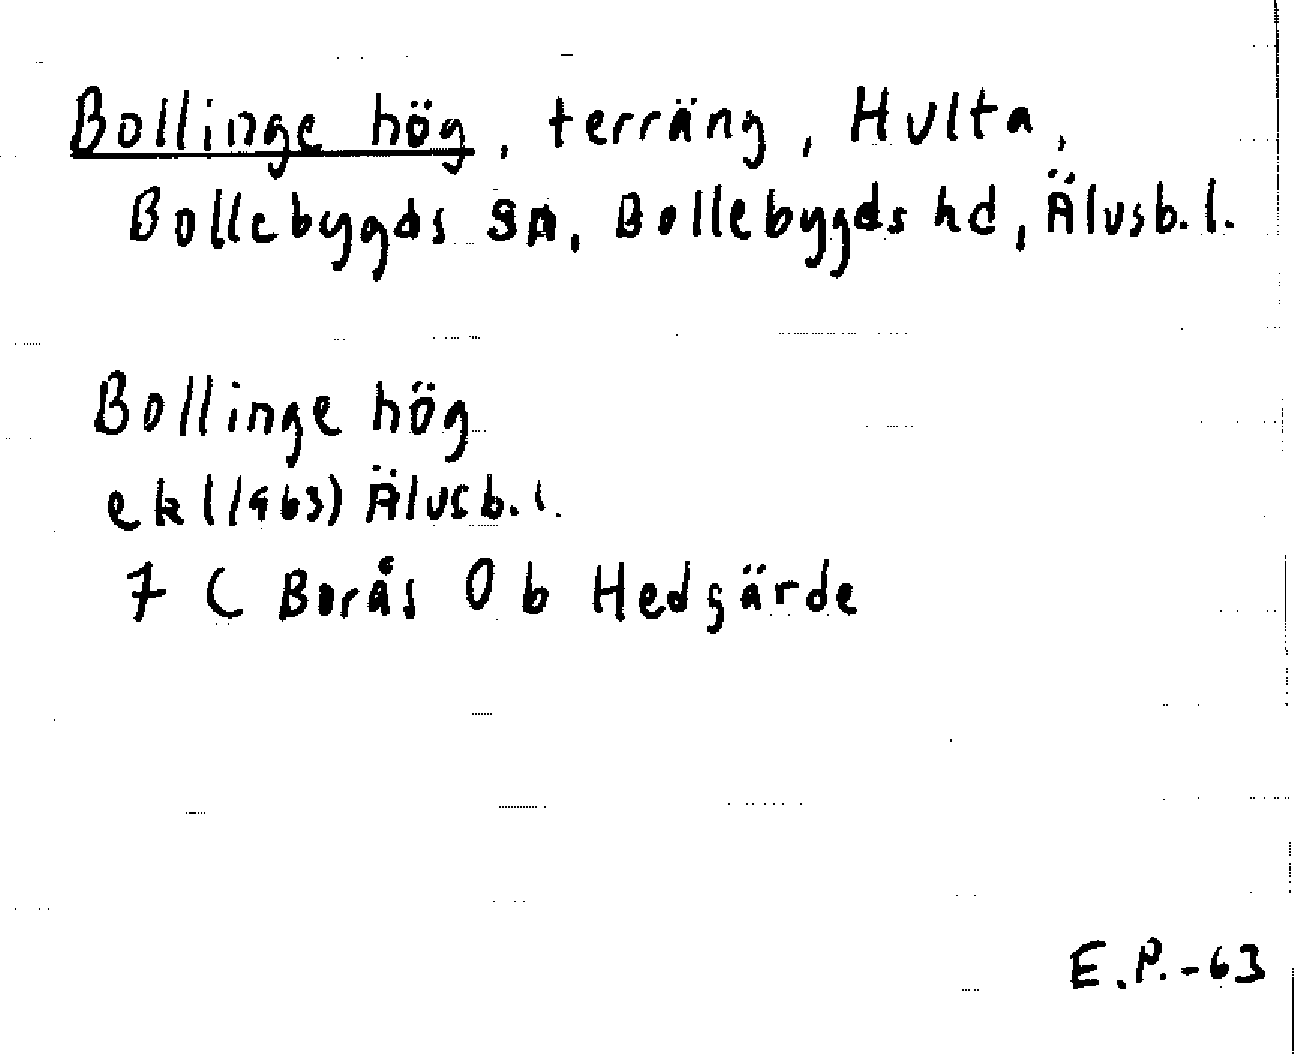 Bollinge hög, terräng, Hulta,
Bollebygds sn, Bollebygds hd, Älvsb. l.
Bollinge hög
ek (1963) Älvsb. l.
7 C Borås 0 b Hedgärde
E.P.-63